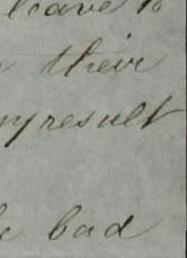 leave to
their
result
bad